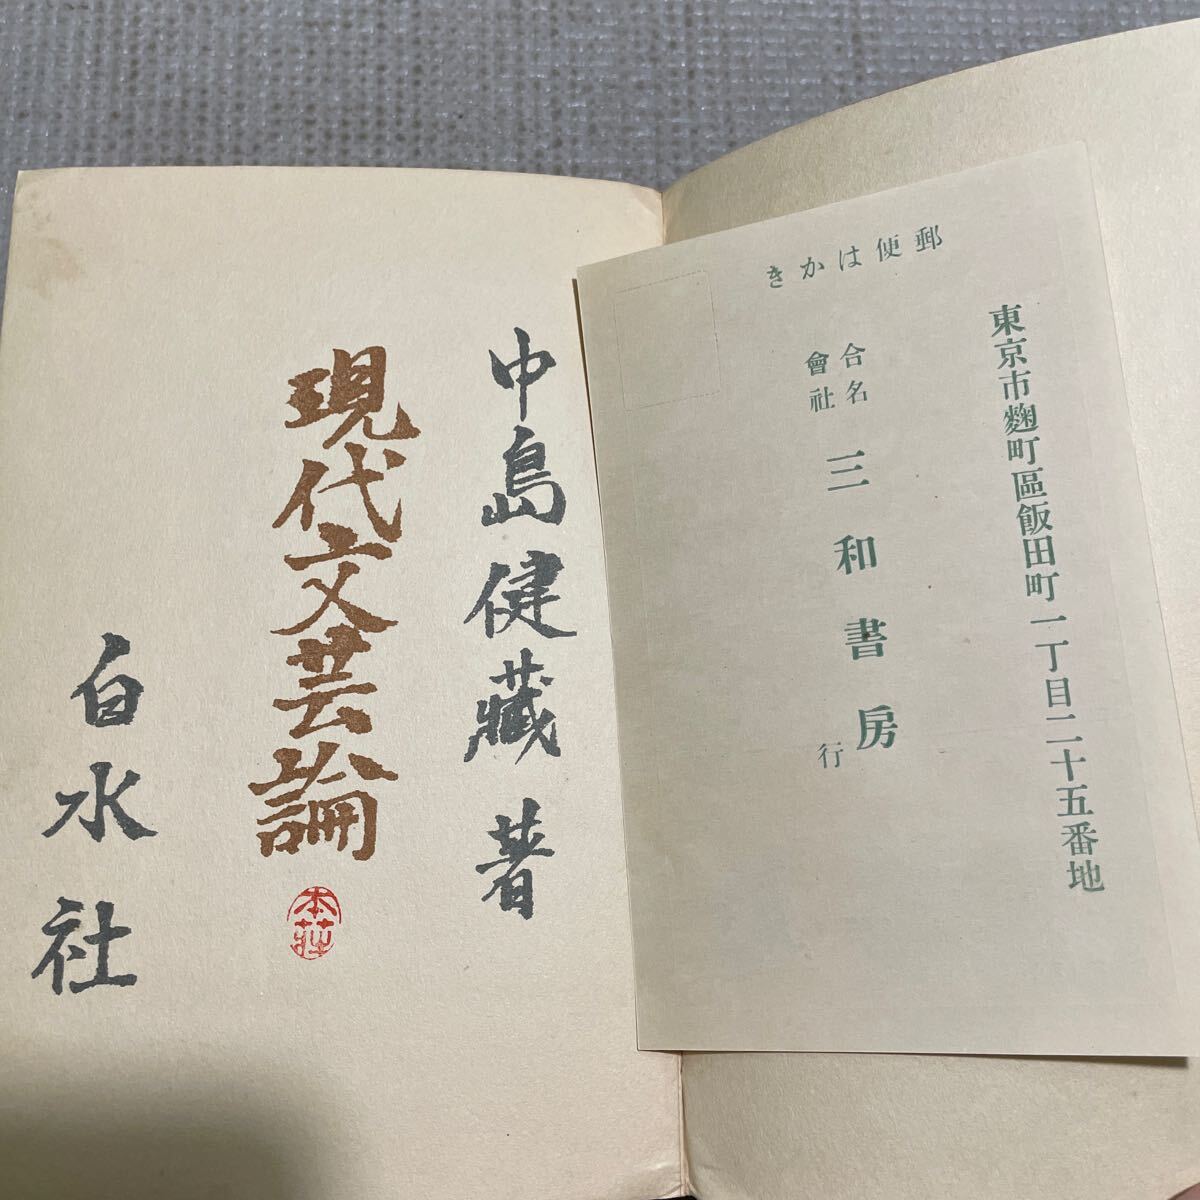 中島健藏著
現代文芸論
本荘
白水社
郵便はかき
東京市麴町區飯田町一丁目二十五番地
合名會社
三和書房
行